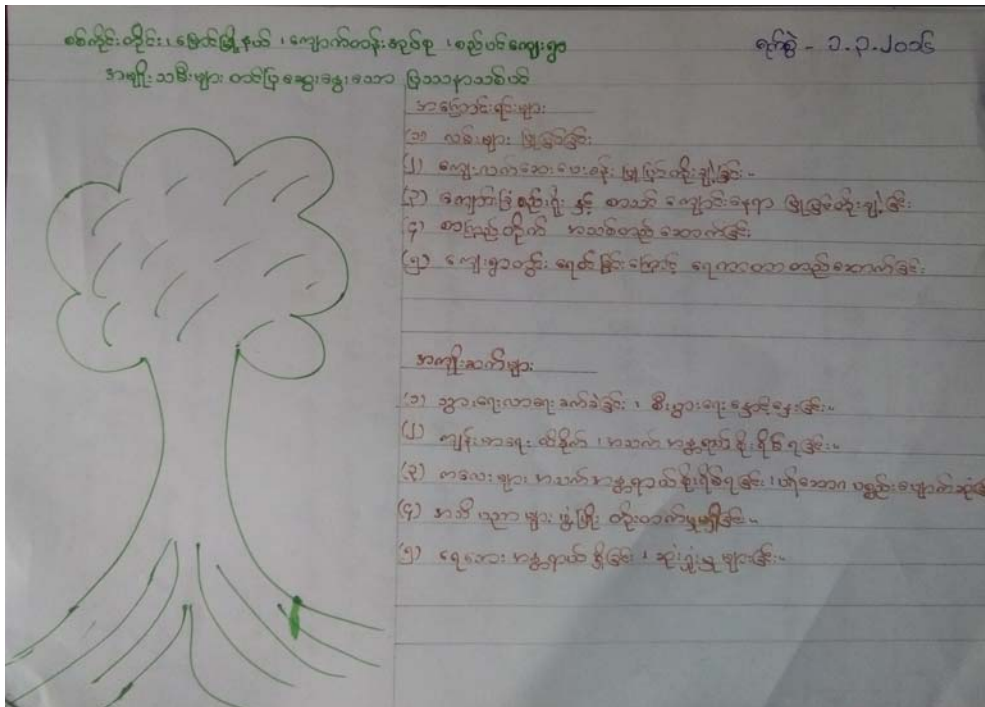 စစ်ကိုင်းတိုင်း၊ မြောင်မြို့နယ်၊ ကျောက်တန်းအုပ်စု၊ စည်ပင်ကျေးရွာ
ရက်စွဲ - ၁.၃.၂၀၁၆
အမျိုးသမီးများ တင်ပြဆွေးနွေးသော ပြဿနာသစ်ပင်
အကြောင်းရင်းများ
(၁) လမ်းများ ပြုပြင်ခြင်း
(၂) ကျေးလက်ဆေးပေးခန်း ပြုပြင်တိုးချဲ့ခြင်း -
(၃) ကျောင်းခြံစည်းရိုး နှင့် စာသင် ကျောင်းနေရာ ပြုပြင်တိုးချဲ့ခြင်း
(၄) စာကြည့်တိုက် အသစ်တည်ဆောက်ခြင်း
(၅) ကျေးရွာတွင်း ရေဝင်ခြင်းကြောင့် ရေကာတာတည်ဆောက်ခြင်း
အကျိုးဆက်များ
(၁) သွားရေးလာရေး ခက်ခဲခြင်း၊ စီးပွားရေး နှောင့်နှေးခြင်း။
(၂) ကျန်းမာရေး ထိခိုက်၊ အသက် အန္တရာယ် စိုးရိမ်ရခြင်း။
(၃) ကလေးများ အသက်အန္တရာယ်စိုးရိမ်ရခြင်း၊ ပရိဘောဂ ပစ္စည်းပျောက်ဆုံး
(၄) အသိပညာများ ဖွံ့ဖြိုး တိုးတက်မှုမရှိခြင်း။
(၅) ရေဘေး အန္တရာယ် ရှိခြင်း၊ ဆုံးရှုံးမှု များခြင်း။